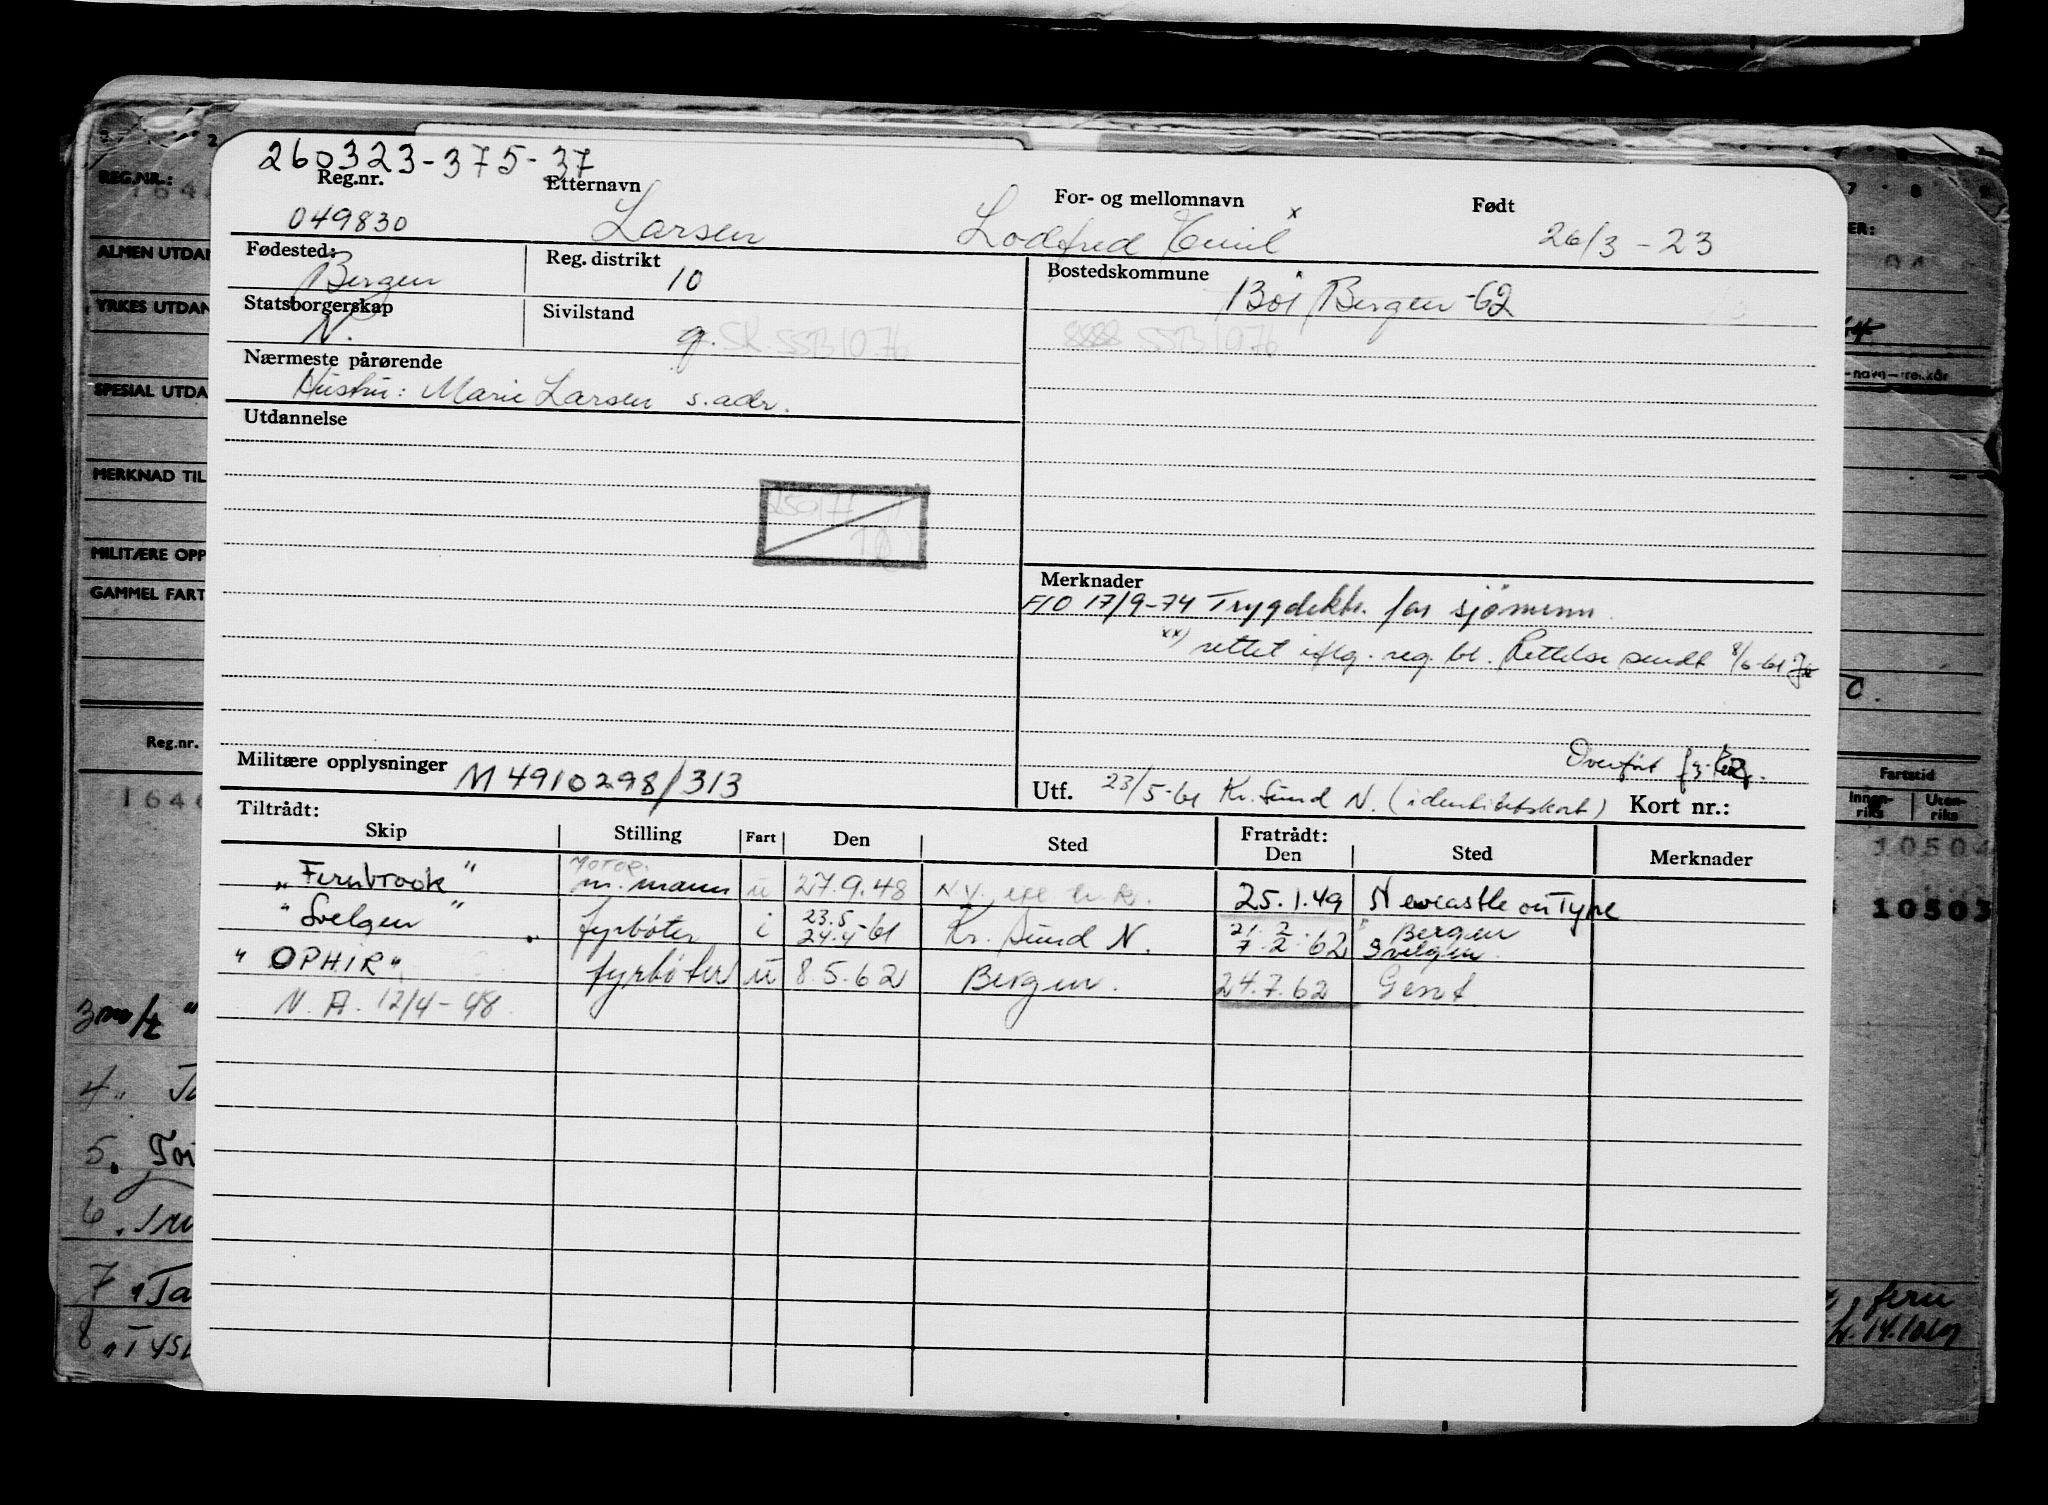 260323-375-37
Reg.nr. Etternavn For- og mellomnavn Født
049830 Larsen Lodfred Emil x 26/3-23
Fødested: Bergen Reg. distrikt 10 Bostedskommune 1301 Bergen -62
Statsborgerskap N. Sivilstand g. Sk. SSB1076 SSB1076
Nærmeste pårørende
Hustru: Marie Larsen s.adr.
Utdannelse
250177
10
Merknader
F/O 17/9-74 Trygdektr. for sjömenn.
xx) rettet iflg. reg. bl. Rettelse sendt 8/6-61
Overført
Militære opplysninger M4910298/313
Utf. 23/5-61 Kr. Sund N. (identitetskort) Kort nr.:
Tiltrådt: Fratrådt:
Skip Stilling Fart Den Sted Den Sted Merknader
MOTOR.
"Fernbrook" m. mann u 27.9.48 N.Y. 25.1.49 Newcastle on Tyne
"Svelgen" fyrbøter i 23.5 24.4-61 Kr. Sund N. 21.2. 7.2.62 Bergen Svelgen.
"OPHIR" fyrbøter u 8.5.62 Bergen. 24.7.62 Gent
N.A. 12/4-48.
REG.NR.:
ALMEN UTDAN
YRKES UTDAN
SPESIAL UTDA
MERKNAD TIL
MILITÆRE OPP
GAMMEL FART
Reg.nr.
Fartstid
Innenriks Utenriks
10504
10503